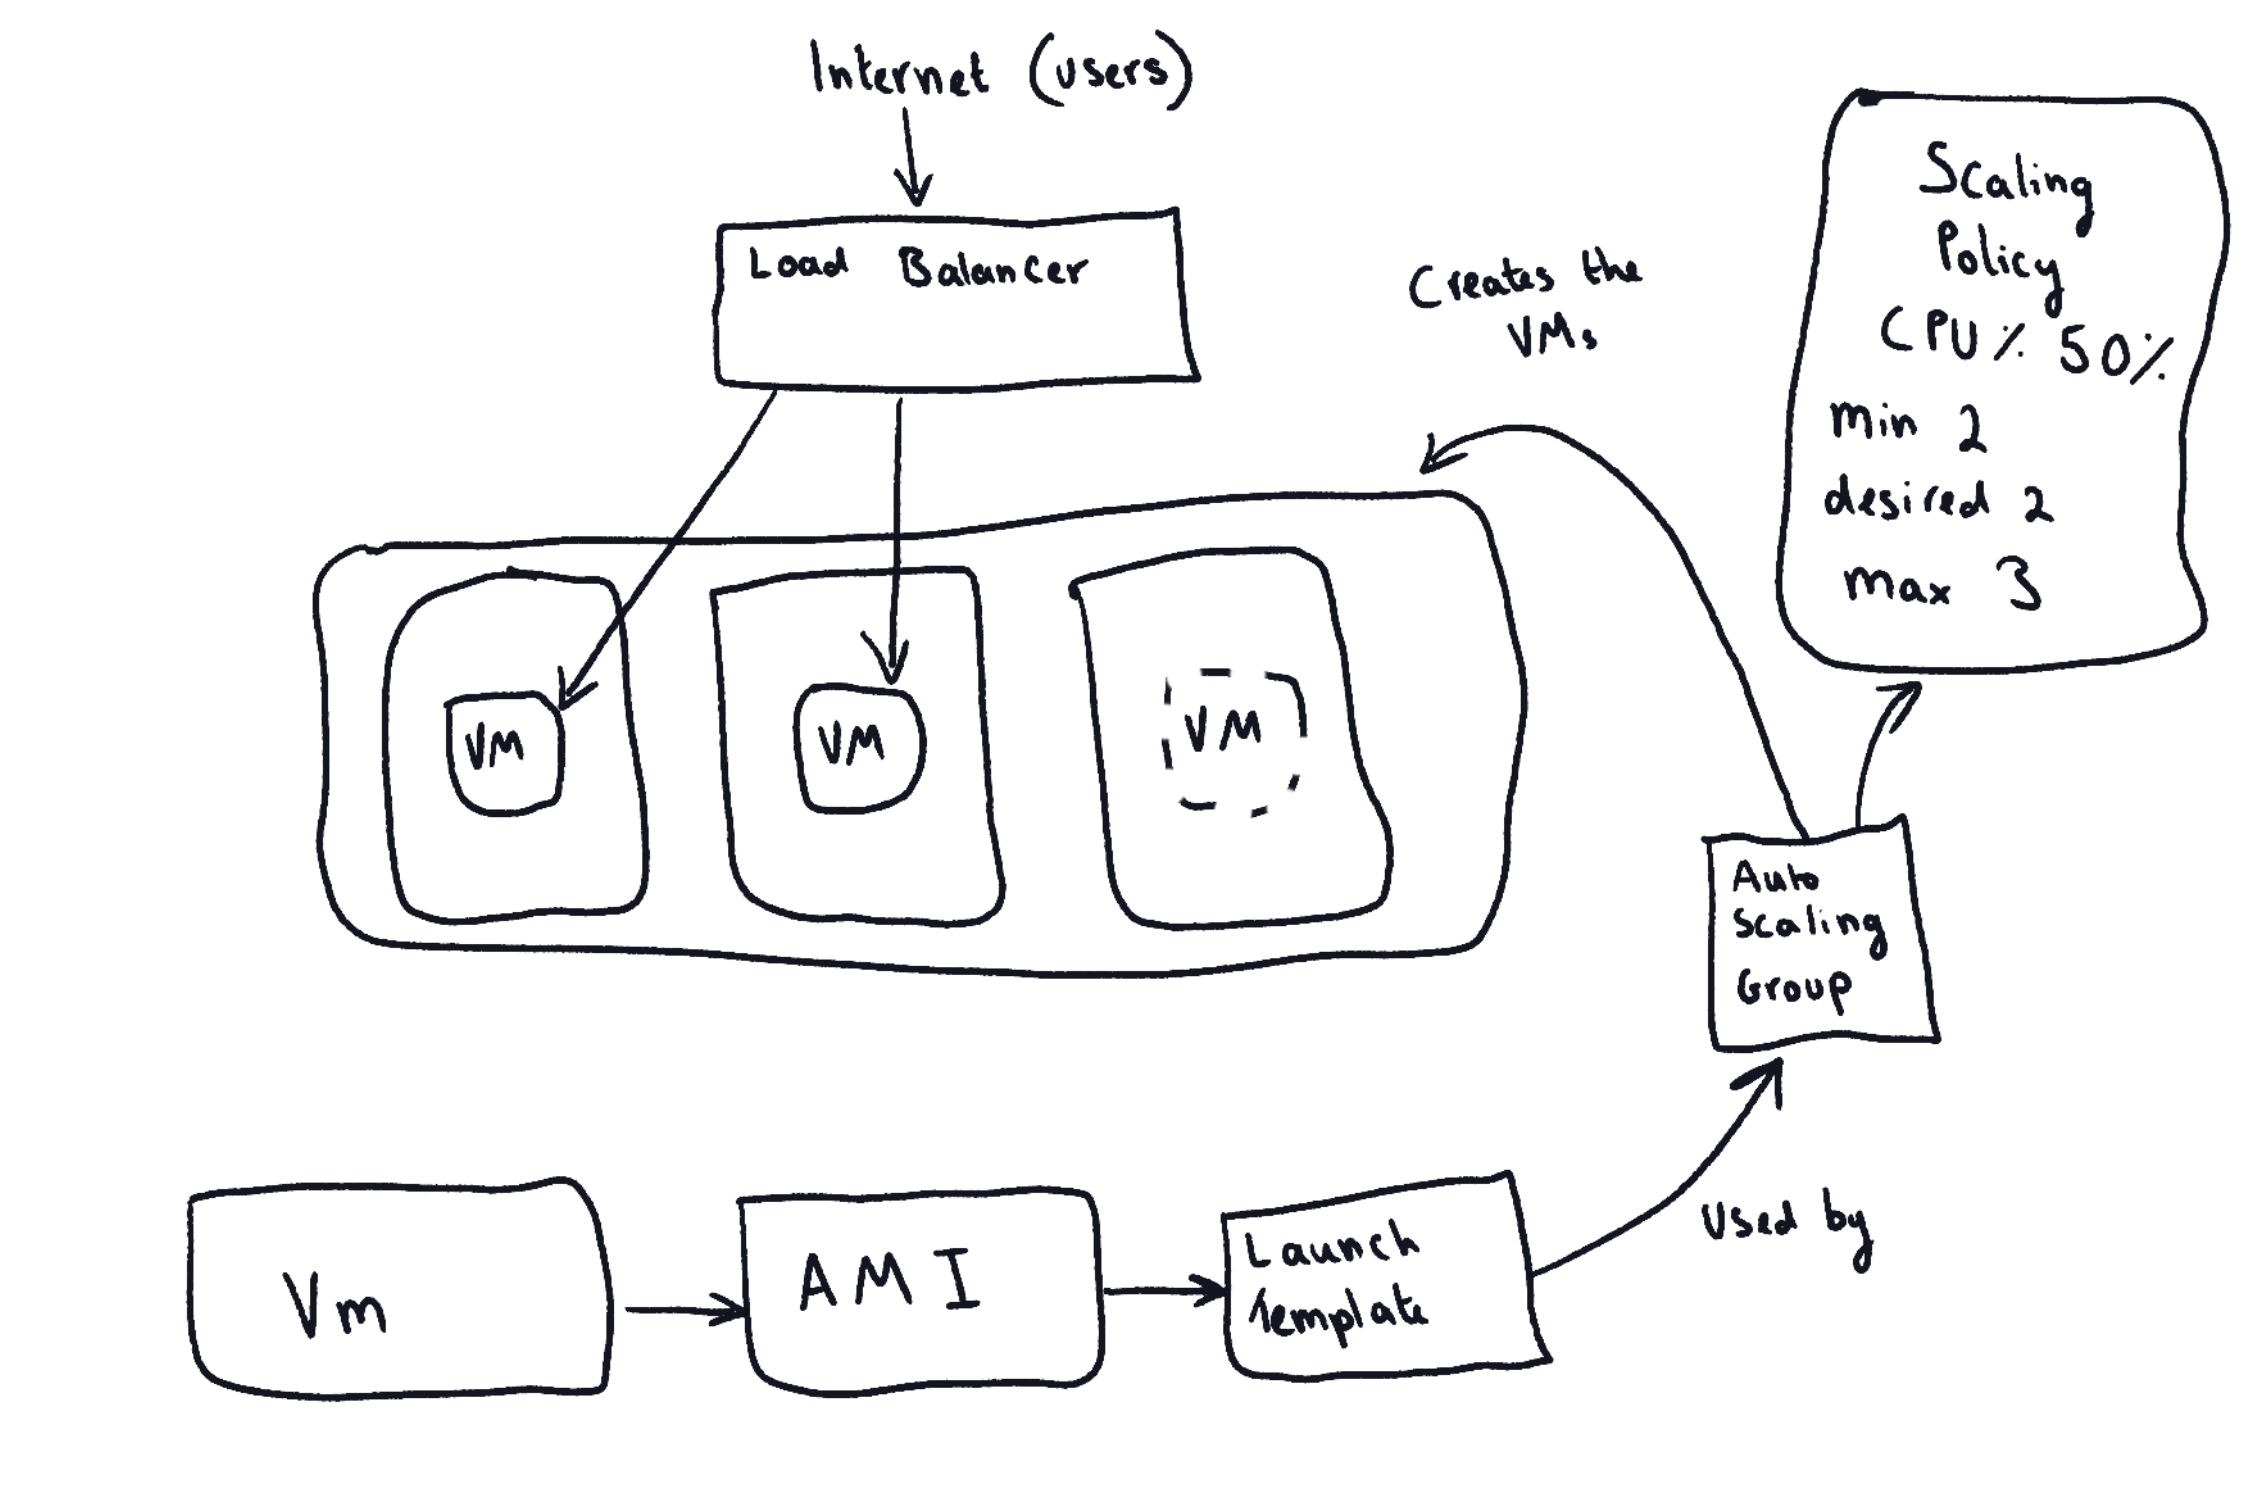 Internet (users)
Load Balancer
Creates the
VMs
Scaling
Policy
CPU % 50%
min 2
desired 2
max 3
VM
VM
VM
Auto
Scaling
Group
Used by
Vm
AMI
Launch
Template